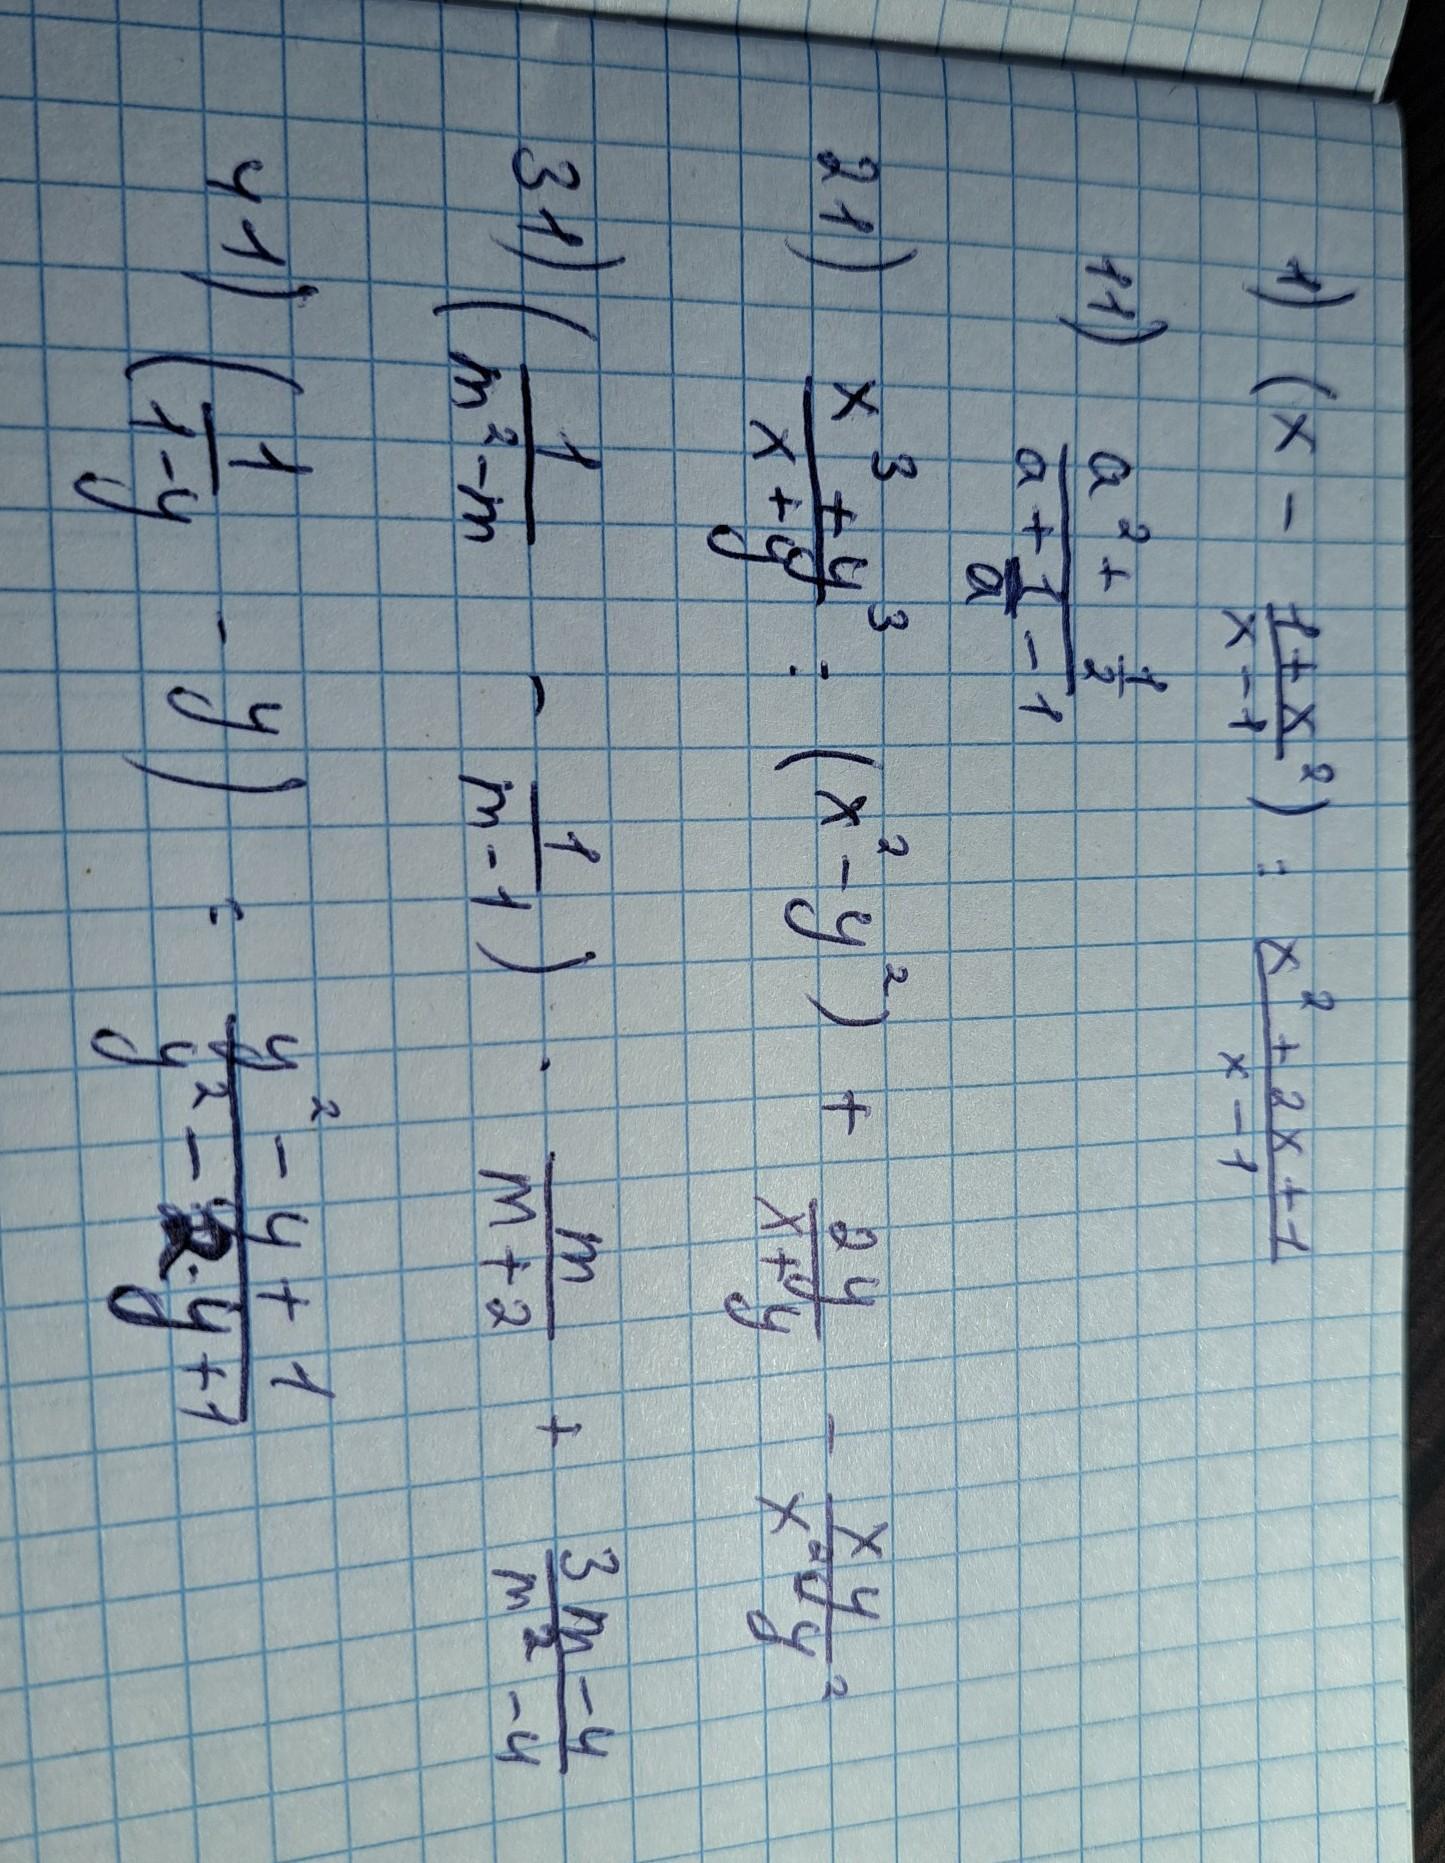 1) (x - \frac{1+x^2}{x-1}) : \frac{x^2+2x+1}{x-1}
11) \frac{a^2+\frac{1}{2}}{a+\frac{1}{a}-1}
21) \frac{x^3+y^3}{x+y} : (x^2-y^2) + \frac{2y}{x+y} - \frac{xy}{x^2-y^2}
31) (\frac{1}{m^2-m} - \frac{1}{m-1}) \cdot \frac{m}{m+2} + \frac{3m-4}{m^2-4}
41) (\frac{1}{1-y} - y) : \frac{y^2-y+1}{y^2-2 \cdot y+1}